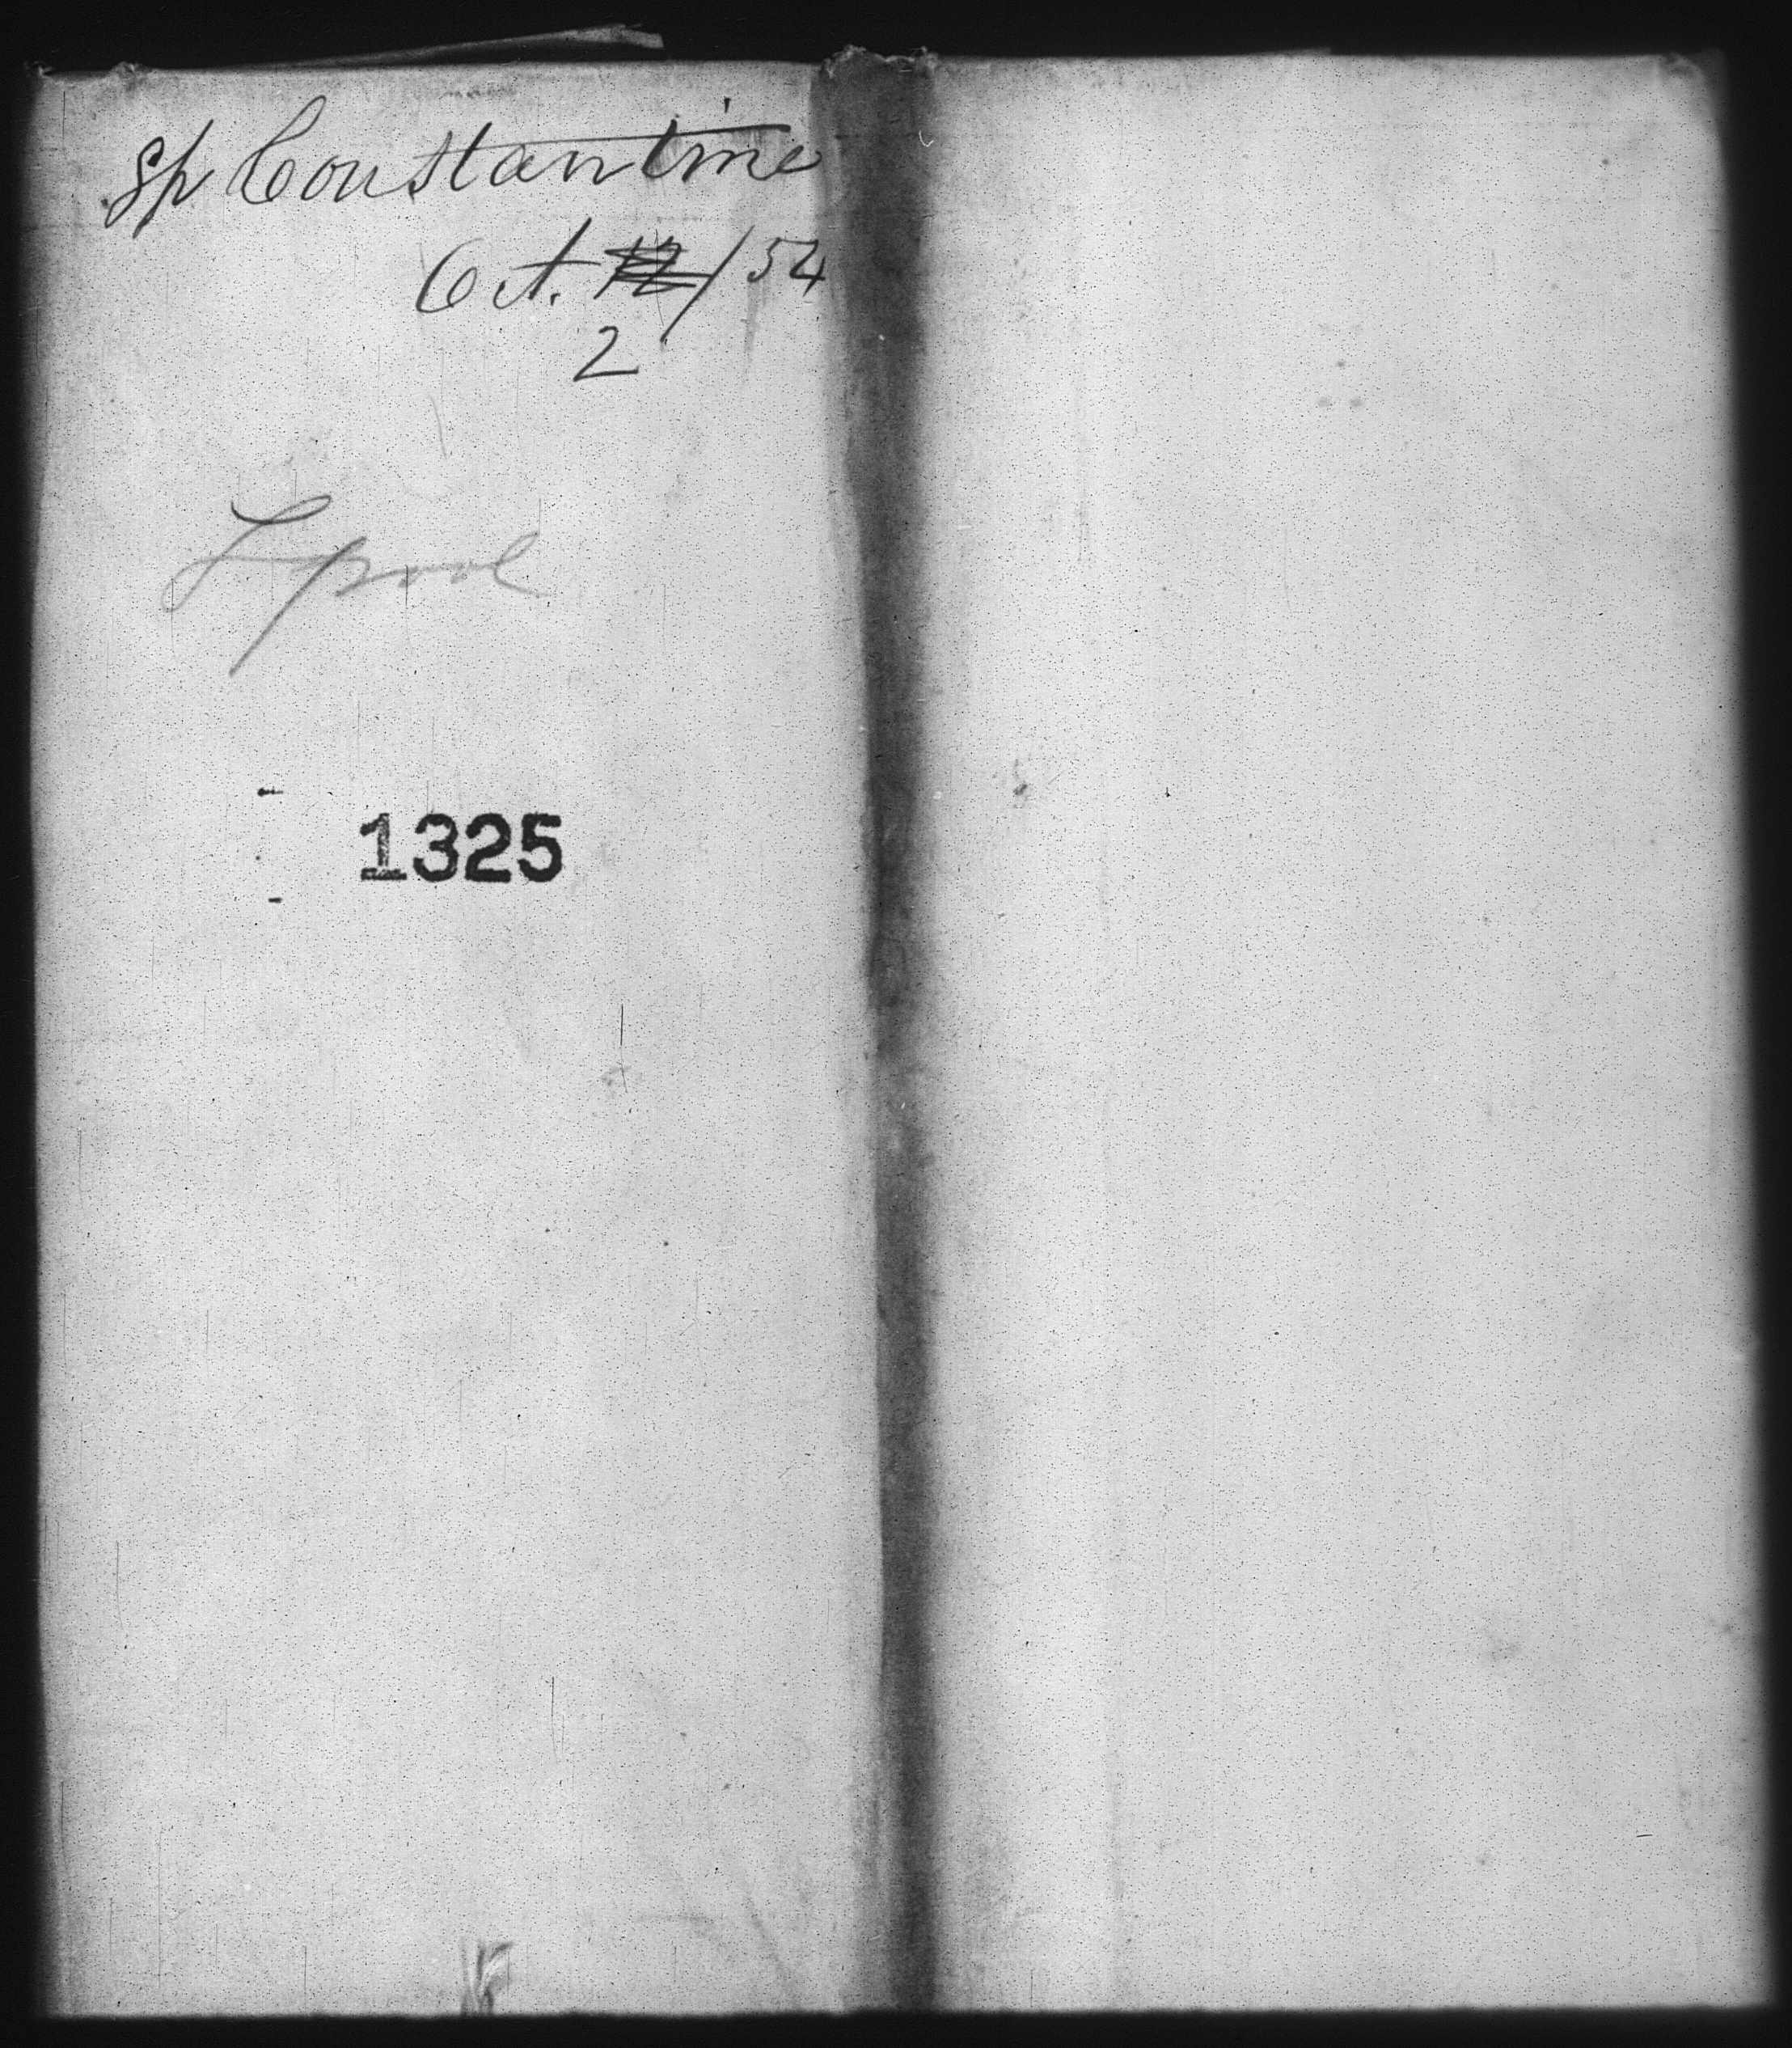 Sp Constantine
Oct. 12/54
2
Lpool
1325